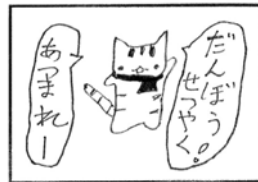 だんぼう
せつやく!
あつまれー